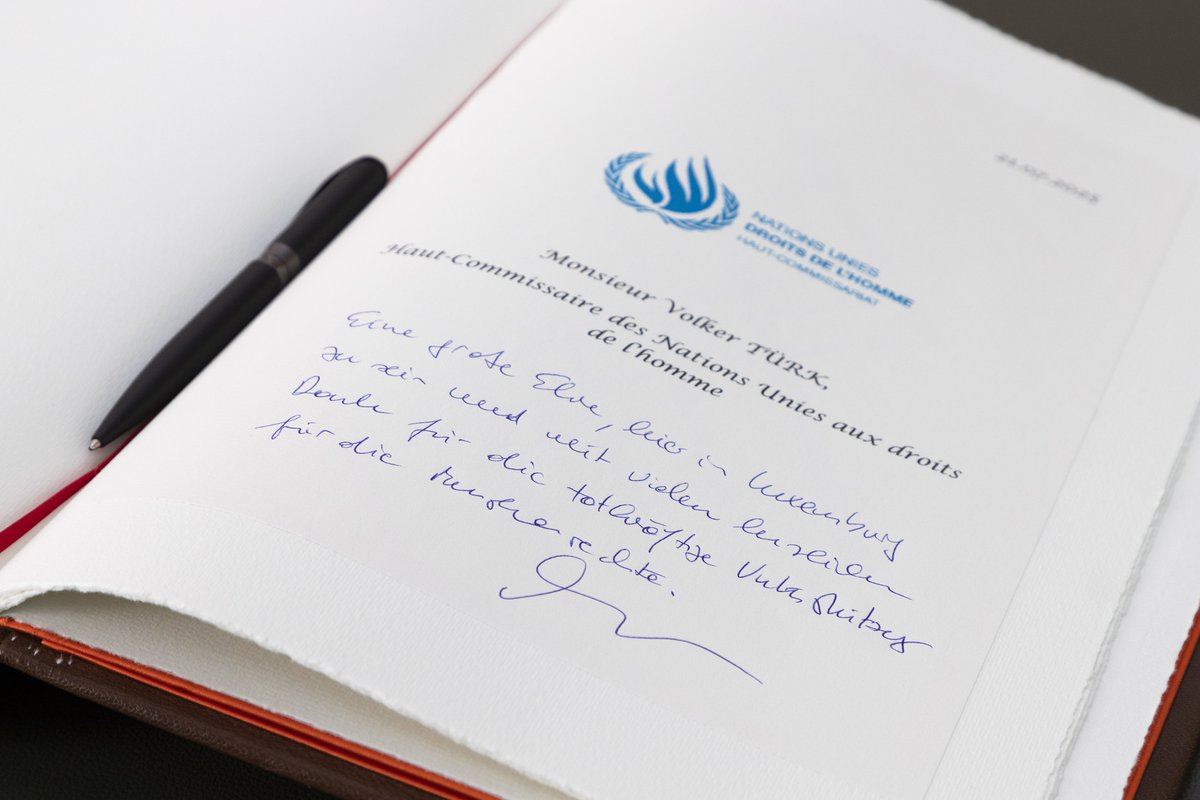 NATIONS UNIES
DROITS DE L'HOMME
HAUT-COMMISSARIAT
Monsieur Volker TÜRK,
Haut-Commissaire des Nations Unies aux droits
de l'homme
Eine große Ehre, hier in Luxemburg
zu sein und mit vielen herzlichen
Dank für die tatkräftige Unterstützung
für die Menschenrechte.